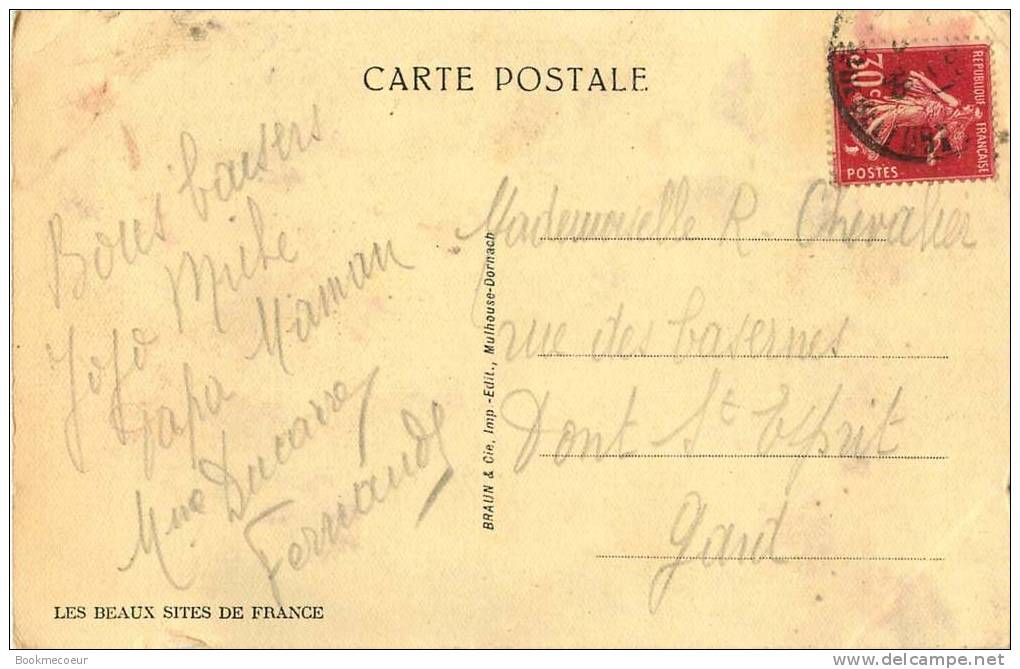 CARTE POSTALE
30c
REPUBLIQUE FRANÇAISE
POSTES
Bons baisers
Miche
Jojo Maman
Papa
Mme Ducarre
Fernande
BRAUN & Cie, Imp.-Edit., Mulhouse-Dornach
Mademoiselle R. Chevalier
rue des Casernes
Pont St Esprit
Gard
LES BEAUX SITES DE FRANCE
Bookmecoeur
delcampe.net